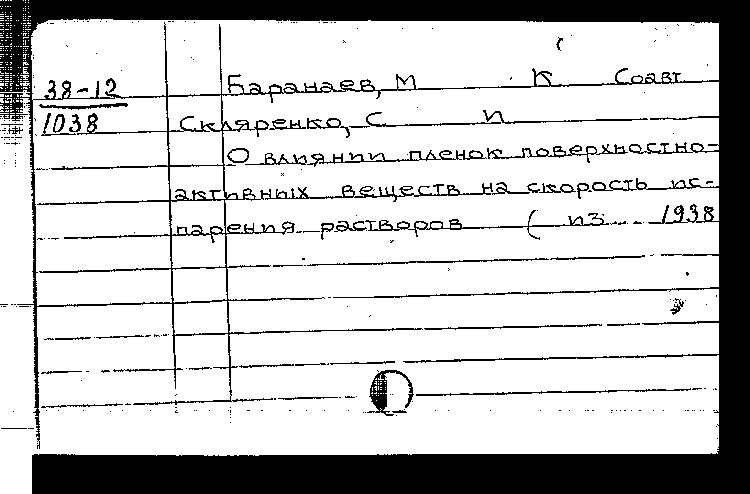 38-12 Баранаев, М К Соавт
1038 Скляренко, С И
О влиянии пленок поверхностно=
активных веществ на скорость ис-
парения растворов ( из... 1938